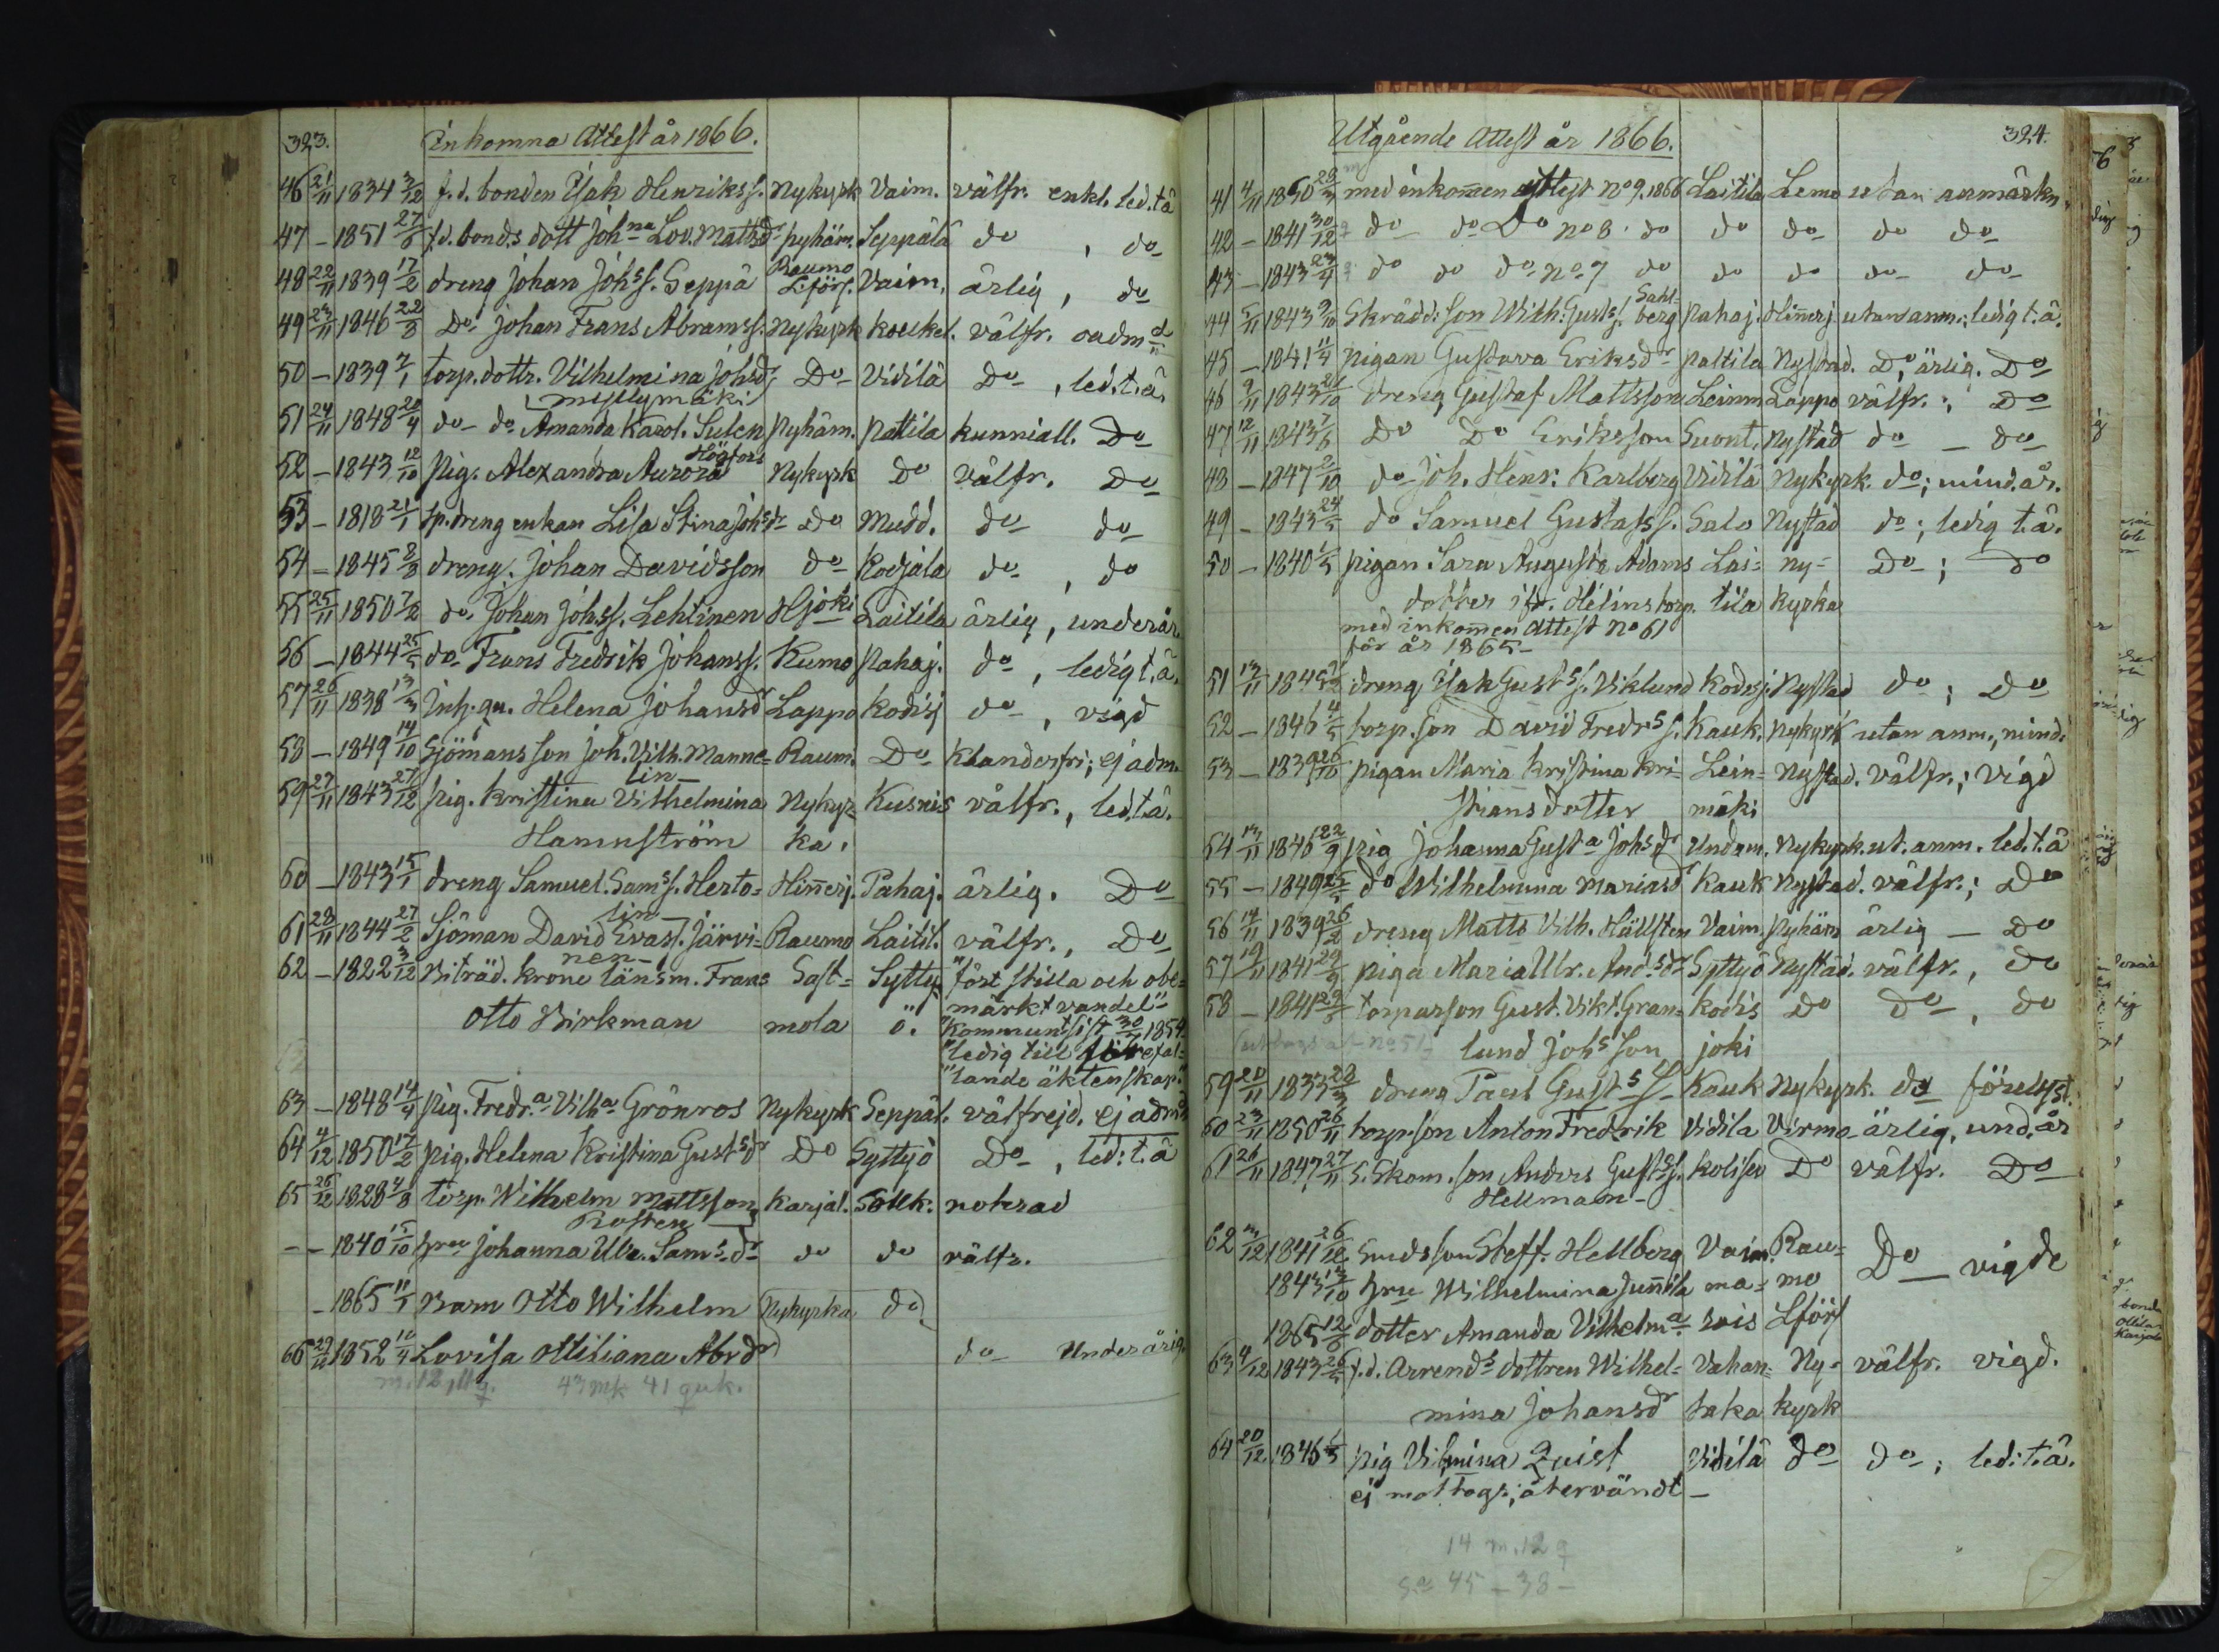 323. Inkomna Attest år 1866.
46 21/11 1834 3/12 f.d. bonden Isak Henrikss. Nykyrk Vaim. välfr. enkl. led. t. ä
47 – 1851 27/6 f.d. bonds dott Joh:na Lov. Mattsdr pyhäm. Seppälä do , do
48 22/11 1839 17/2 dreng Johan Johss. Seppä Raumo Lförs. Vaim. ärlig, do
49 23/11 1846 22/8 Do Johan Frans Abramss. Nykyrk koukel. välfr. oadm
50 – 1839 7/1 torp. dottr. Vilhelmina Johsdr Do Vidilä Do , led. t. ä.
myllymäki
51 24/11 1848 20/4 do do Amanda Karol. Sulen Pyhäm. Pattila kunniall. Do
Högfors
52 – 1843 12/10 Pig. Alexandra Aurora Nykyrk Do välfr. Do
53 – 1818 21/1 sp. dreng enkan Lisa Stina Johsdr Do Mudd. do do
54 – 1845 8/8 dreng. Johan Davidsson do Kodjala do , do
55 25/11 1850 7/2 do. Johan Johss. Lehtinen Hjoki Laitila ärlig, underår
56 – 1844 25/5 do Frans Fredrik Johanss. Kumo Pahaj. do , ledig t. ä.
57 26/11 1838 13/3 Inh. qu. Helena Johansdr Lappo Kodisj do , vigd
58 – 1849 14/10 Sjömans son Joh. Vilh. Manne= Raum. Do klanderfri; ej adm.
lin –
59 27/11 1843 27/12 pig. Kristina Vilhelmina Nykyr= Kusnis välfr., led. t. ä.
Hamnström ka.
60 – 1843 15/1 dreng Samuel Sams s. Herto= Hinnerj. Pahaj. ärlig. Do
lin –
61 29/11 1844 27/2 Sjöman David Evass. Järvi= Raumo Laitil. välfr., Do
nen –
62 – 1822 3/12 Biträd. krono länsm. Frans Sast= Sytty= "fört stilla och obe=
Otto Birkman mola ö. märkt vandel"
"kommun. sist 30/4 1854
"ledig till förefal=
"lande äktenskap"
63 – 1848 14/4 pig. Fredr:a Vilh:a Grönros Nykyrk Seppäl. välfrejd. ej adm
64 4/12 1850 17/2 pig. Helena Kristina Gustsdr Do Syttyö Do , led: t. ä
65 26/12 1828 4/8 torp. Wilhelm Mattsson Karjal. Soukk. noterad
Rosten
– – 1840 15/10 hru Johanna Ulr. Sams.dr do do välfr.
– 1865 11/1 Barn Otto Wilhelm Nykyrka do
66 29/12 1852 10/4 Lovisa Ottiliana Abrdr do Underårig
43 mk 41
Utgående Attest år 1866. 324.
41 4/11 1850 29/3 med inkommen attest No 9. 1866 Laitila Lemo utan anmärkn.
42 – 1841 30/12 do do Do no 8. do do do do do
43 – 1843 23/4 do do do no. 7 do do do do do
Sahl=
44 5/11 1843 9/10 Skrädd: son Wilh: Gusts s. berg Pahaj. Hinnerj utan anm.; ledig t. ä.
45 – 1841 11/4 pigan Gustava Eriksdr Paltila Nystad. Do; ärlig. Do
46 9/11 1843 21/10 dreng Gustaf Mattsson Leinm Lappo välfr. ; Do
47 12/11 1843 7/6 Do Do Eriksson Suont. Nystad do – do
48 – 1847 2/10 do Joh. Henr: Karlberg Vidilä Nykyrk. do; mind. år.
49 – 1843 24/5 do Samuel Gustafss. Salo Nystad do; ledig t. ä.
50 – 1840 1/5 pigan Sara Augusta Adams Lai= Ny= Do ; do
dotter ifr. Helins torp. tila kyrka
med inkommen Attest No 61
för år 1865 –
51 13/11 1845 dreng Isak Gusts s. Viklund Kodisj. Nystad do ; Do
52 – 1846 4/5 torp. son David Fredrs s. Kauk. Nykyrk utan anm., mind.
53 – 1839 26/10 pigan Maria Kristina Kri= Lein= Nystad. välfr.; vigd
stiansdotter mäki
54 13/11 1846 22/9 pig Johanna Gust:a Johsdr Undam. Nykyrk. ut. anm. led. t. ä
55 – 1849 25/5 do Wilhelmina Mariasdr Kauk Nystad. välfr.; Do
56 14/11 1839 26/2 dreng Matts Vilh. Hällsten Vaim. Pyhäm ärlig – Do
57 19/11 1841 29/9 piga Maria Ulr. And.sdr Syttyö Nystad. välfr., do
58 – 1841 29/5 torparson Gust. Vikt. Gran= Kodis Do Do , do
lund Johs son joki
59 20/11 1833 28/3 dreng Paul Gusts s – Kauk Nykyrk. do förelyst.
60 23/11 1850 26/11 torp. son Anton Fredrik Vidila Virmo ärlig, und. år
61 26/11 1847 27/11 S. Skom. son Anders Gustss. Koliser Do välfr. Do
Hellman –
62 3/12 1841 26/12 Smdsson Steff. Hellberg Vaim. Rau= Do – vigde
1843 13/10 hru Wilhelmina Junnila ma= mo
1865 12/6 dotter Amanda Vilhelm:a rois Lförs
63 4/12 1843 26/5 f.d. Arrends dottren Wilhel= Vahan= Ny= välfr. vigd.
mina Johansdr taka kyrk
64 20/12 1846 1/5 pig Vilmina Quist Vidilä do do ; led: t. ä.
ej mottogs; återvändt –
14 m. 12 q
S:a 45 – 38 –